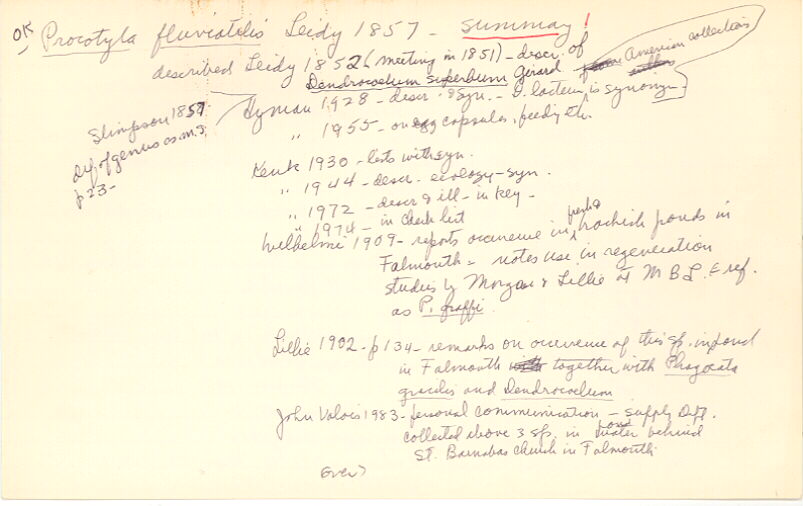 OK, Procotyla fluviatilis Leidy 1857 - summary!
described Leidy 1852 (meeting in 1851) - descr. of
Dendrocoelum superbum Girard - American collections
Hyman 1928 - descr. & syn. - D. lacteum is synonym
" 1955 - on egg capsules, feeding etc.
Stimpson 1857
Def. of genus as m.s.
p 23-
Kenk 1930 - lists with syn.
" 1944 - descr. ecology - syn.
" 1972 - descr & ill - in key -
" 1974 - in check list
Wilhelmi 1909 - reports occurence in fresh & brackish ponds in
Falmouth - notes use in regeneration
studies by Morgan & Lillie at MBL & ref.
as P. graffi.
Lillie 1902 - p 134 - remarks on occurence of this sp. in pond
in Falmouth together with Phagocata
gracilis and Dendrocoelum
John Valois 1983 - personal communication - Supply Dept.
collected above 3 sps. in pond water behind
St. Barnabas Church in Falmouth
over>